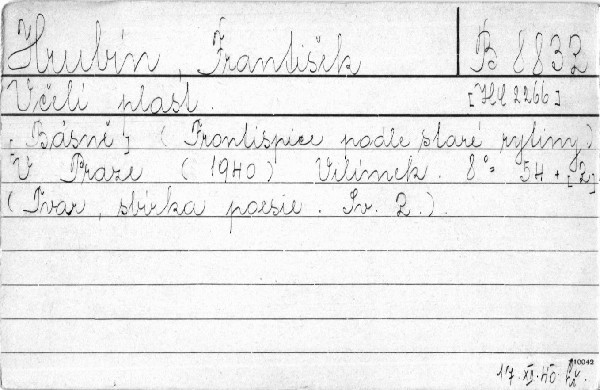 Hrubín, František B 8832
Včelí plást. [HC 2266]
[Básně] (Frontispice podle staré rytiny)
V Praze (1940) Vilímek. 8° 54 + [2]
(Tvar, sbírka poesie. Sv. 2.).
10042
17. XI. 40.